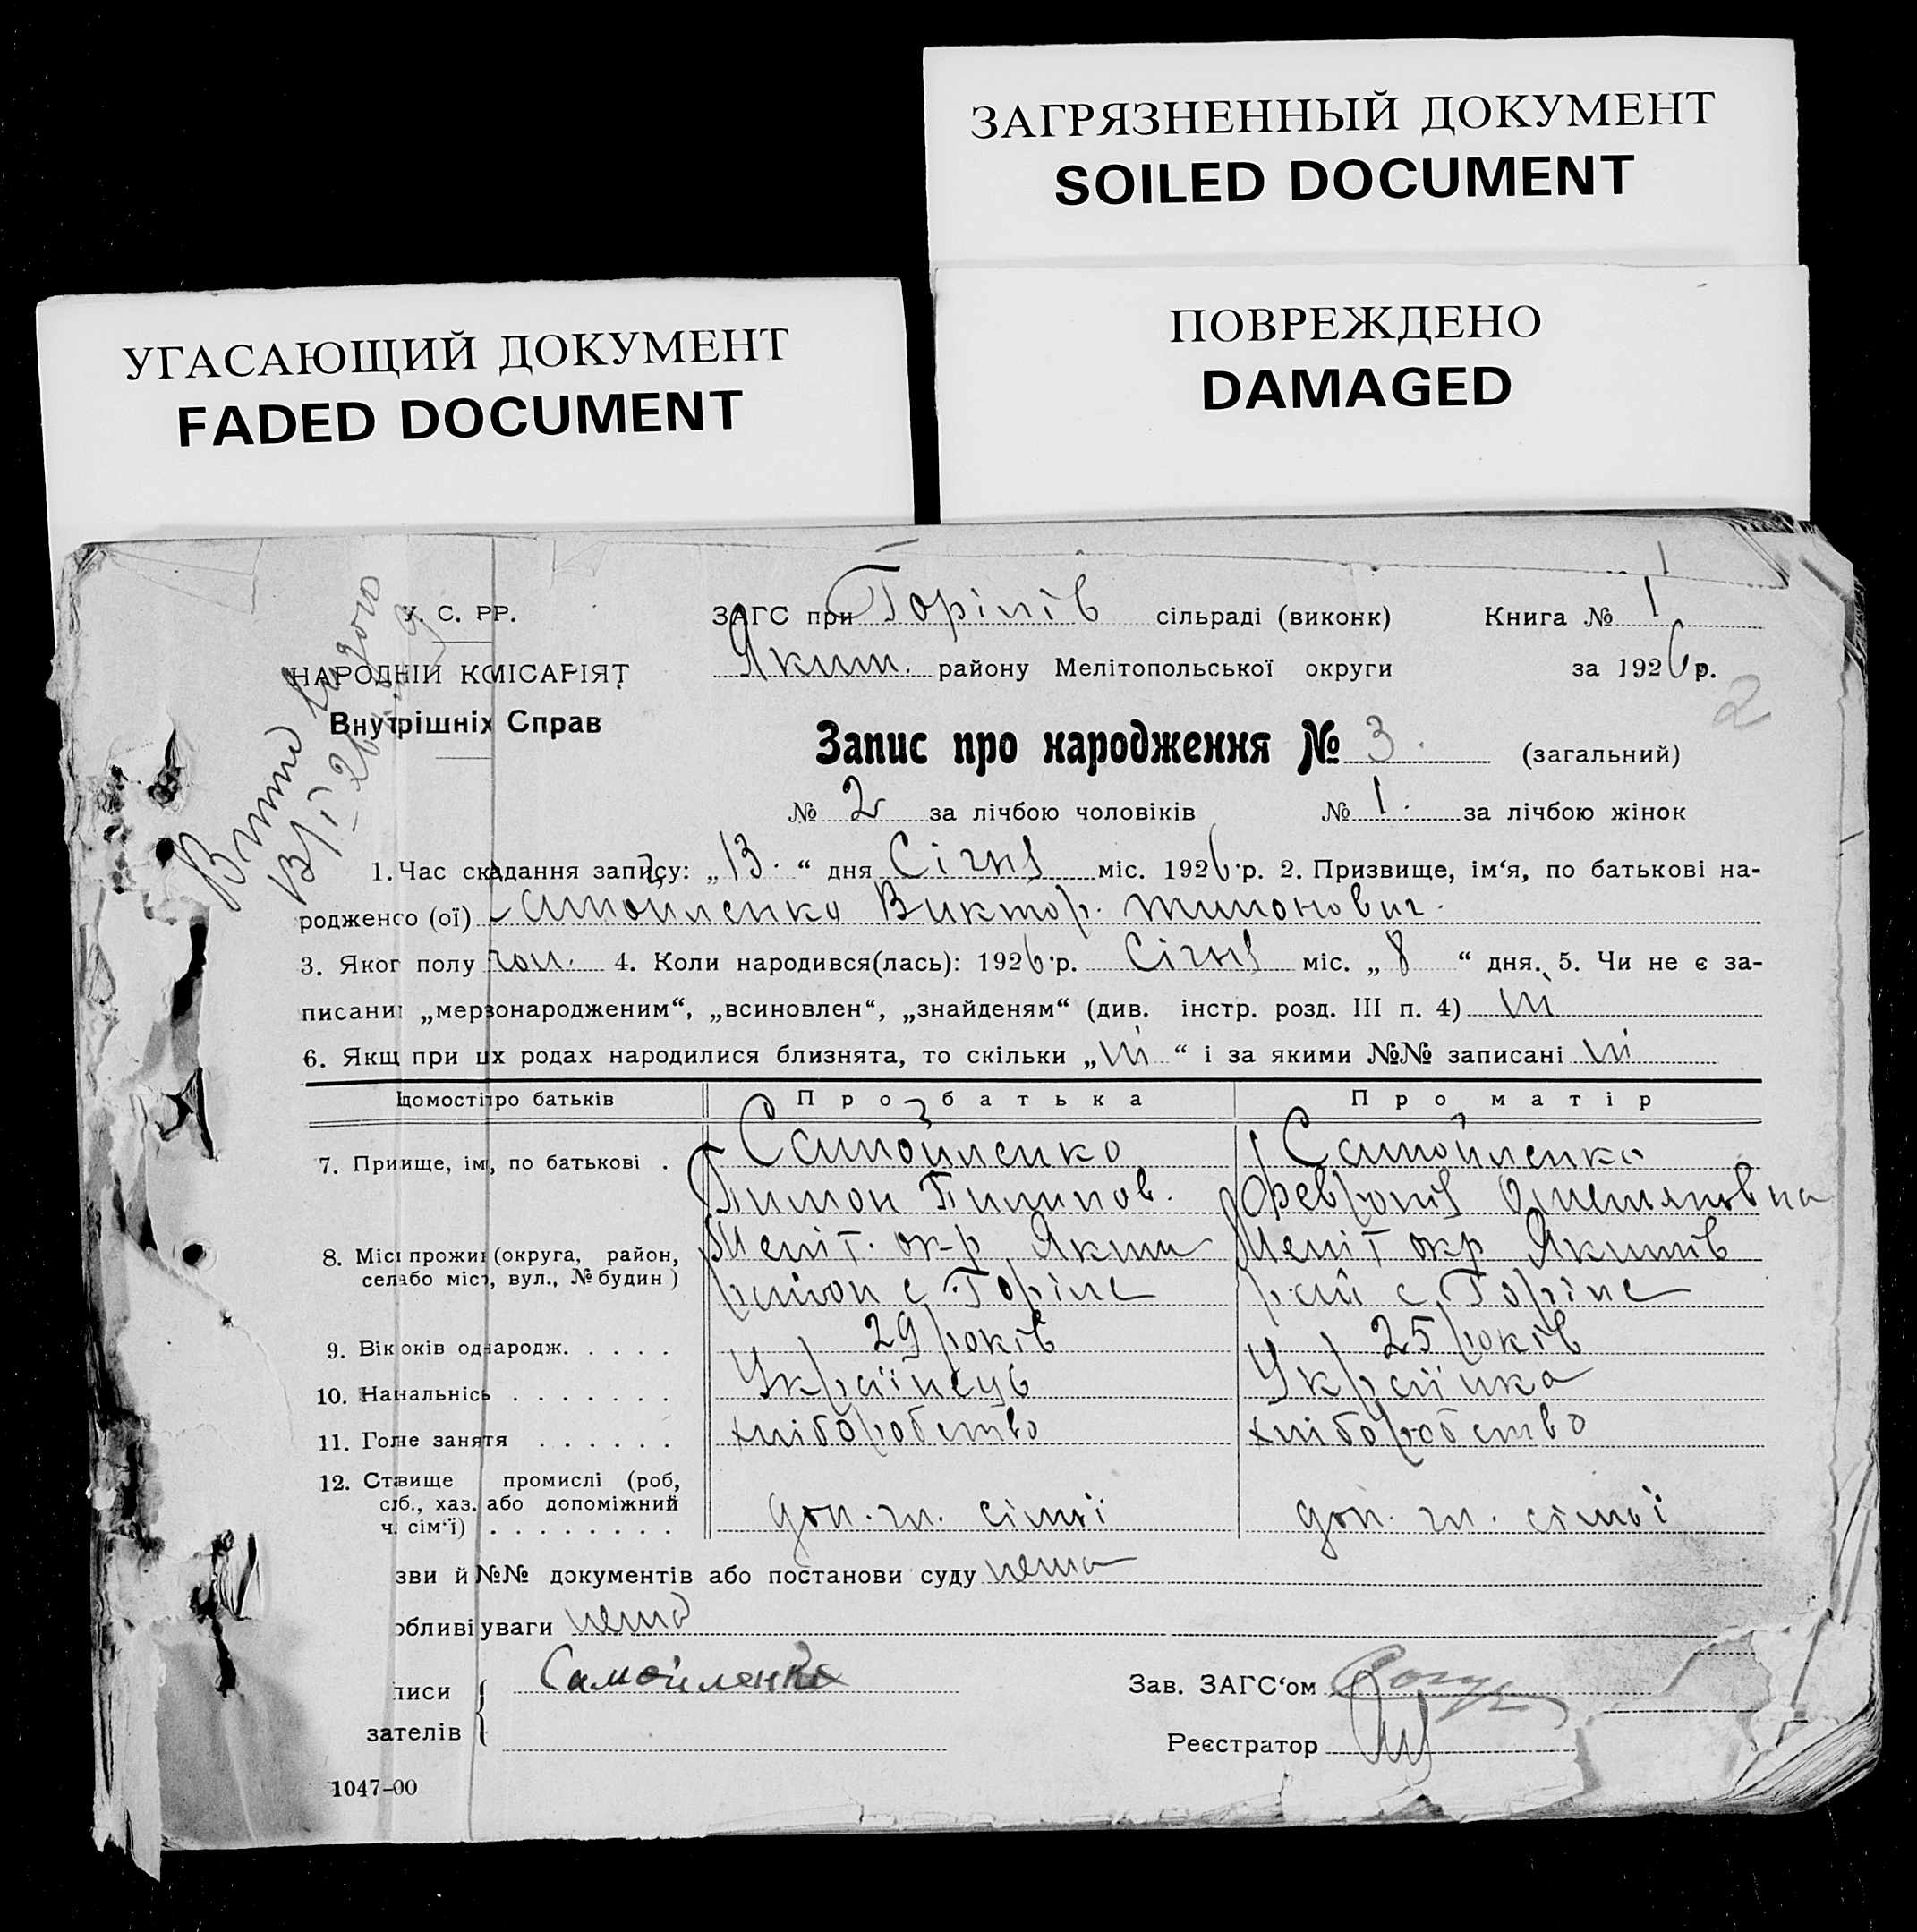 ЗАГРЯЗНЕННЫЙ ДОКУМЕНТ
SOILED DOCUMENT
УГАСАЮЩИЙ ДОКУМЕНТ
FADED DOCUMENT
ПОВРЕЖДЕНО
DAMAGED
У. С. РР.
НАРОДНІЙ КОМІСАРІЯТ
Внутрішніх Справ
ЗАГС при Горіпів сільраді (виконк) Книга № 1
Яким. району Мелітопольської округи за 1926 р.
2
Запис про народження № 3. (загальний)
№ 2 за лічбою чоловіків № 1. за лічбою жінок
1. Час складання запису: „13.“ дня Січня міс. 1926 р. 2. Призвище, ім‘я, по батькові на-
родженого (ої) Самойленко Виктор. Тимонович.
3. Яког полу чол. 4. Коли народився(лась): 1926 р. Січня міс. „8“ дня. 5. Чи не є за-
писани „мерзонародженим“, „всиновлен“, „знайденям“ (див. інстр. розд. III п. 4) ні
6. Якщ при цх родах народилися близнята, то скільки „ні“ і за якими №№ записані ні
домості про батьків Про батька Про матір
7. При ище, ім , по батькові . Самойленко Самойленко
Тимон Пилипов. Февронія Омелянівна
8. Місц прожи (округа, район, Меліт. ок-р Яким Меліт окр Якимів
сел або міс , вул., № будин ) район с. Горіпе рай с. Горіпе
9. Вік років од народж. . . . . 29 років 25 років
10. На нальніс . . . . . . . Українець Українка
11. Гол не заняття . . . . . . хліборобство хліборобство
12. Ст вище промислі (роб,
сл б., хаз. або допоміжний доп. чл. сімьї доп. чл. сімьї
ч. сім‘ї) . . . . . . . .
зви й №№ документів або постанови суду нема
обливі уваги нема
писи Самойленко Зав. ЗАГС‘ом
зателів Реєстратор
1047-00